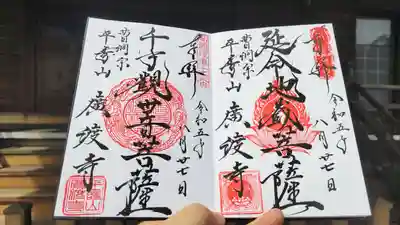 奉拝
令和五年
八月廿七日
延命地蔵菩薩
曹洞宗
平秀山
廣渡寺
奉拝
令和五年
八月廿七日
千手観世音菩薩
曹洞宗
平秀山
廣渡寺